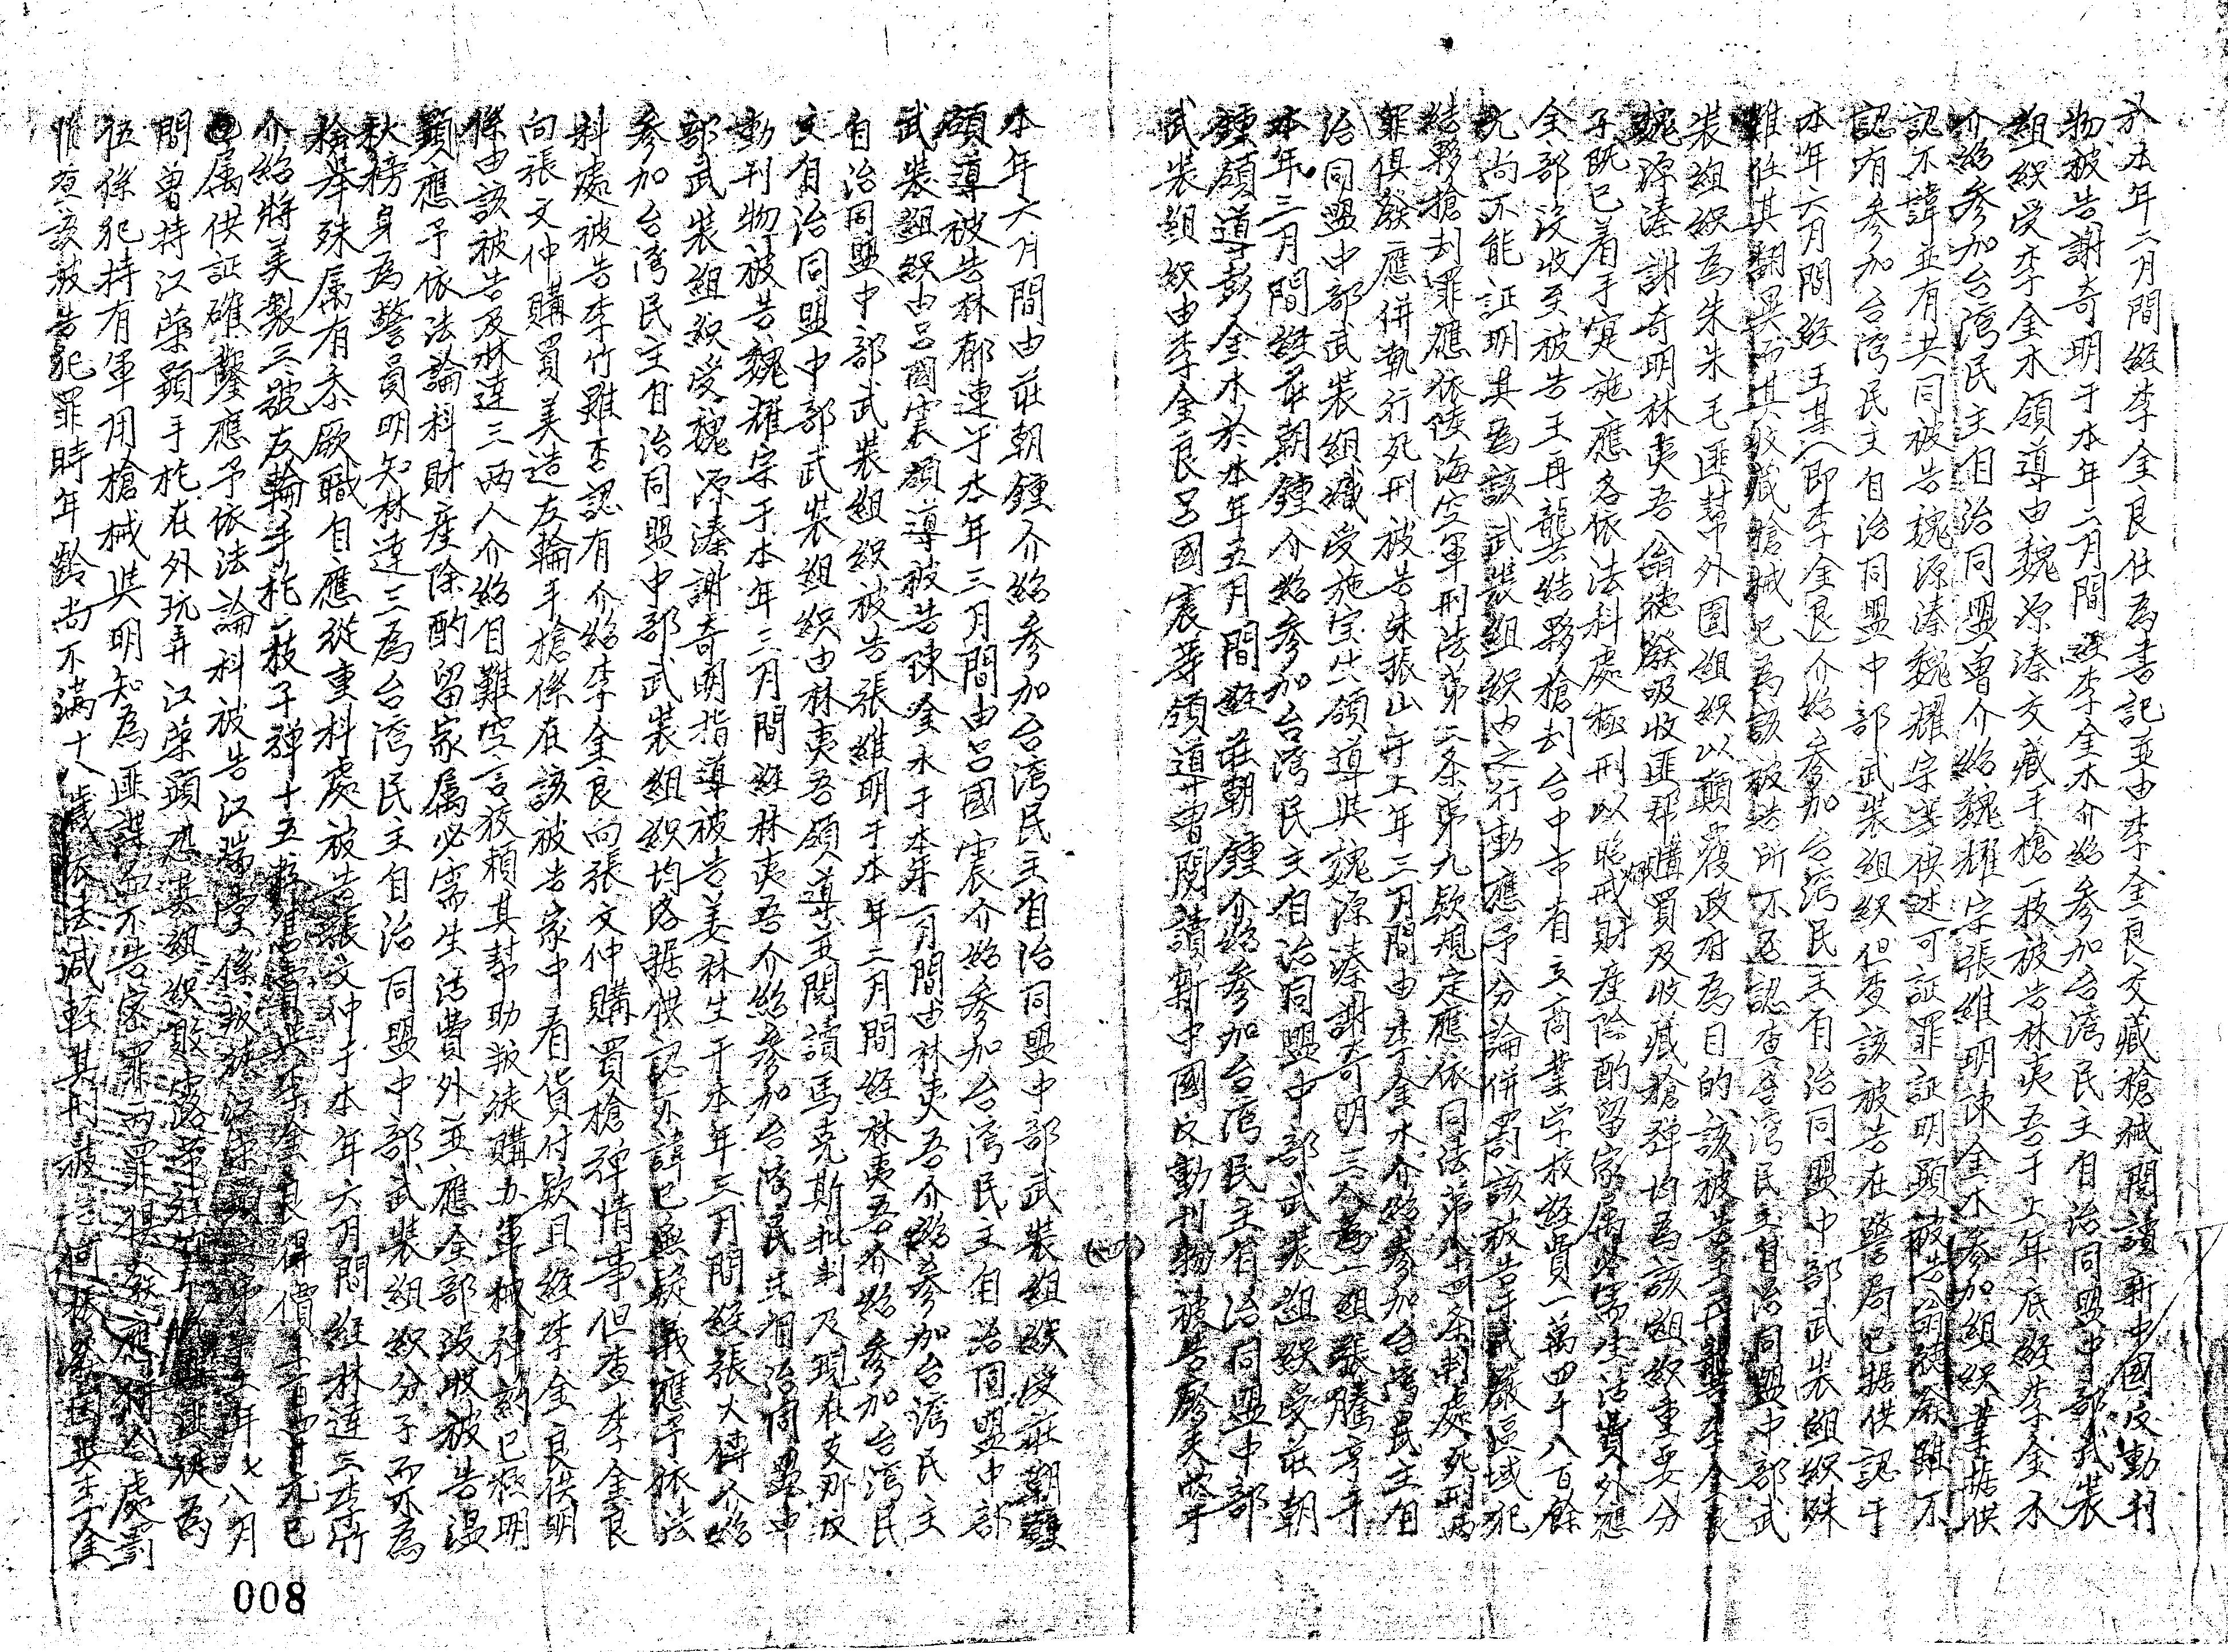 於本年二月間經李金良任為書記並由李金良交藏槍械閱讀新中國反動刊
物被告謝奇明于本年二月間經李金木介紹參加台灣民主自治同盟中部武裝
組織受李金木領導由魏源溱交藏手槍一枝被告林夷吾于上年底經李金木
介紹參加台灣民主自治同盟曾介紹魏耀宗張維明陳金水參加組織業據供
認不諱並有共同被告魏源溱魏耀宗等供述可証罪証明顯被告翁德發雖不
認有參加台灣民主自治同盟中部武裝組織但查該被告在警局已据供認于
本年六月間經王某(即李金良)介紹參加台灣民主自治同盟中部武裝組織殊
難任其翻異而其收藏槍械已為該被告所不否認查台灣民主自治同盟中部武
裝組織為朱朱毛匪幫外圍組織以顛覆政府為目的該被告王再龔李金良
魏源溱謝奇明林夷吾翁德發吸收匪夥購買及收藏槍彈均為該組織重要分
子既已着手实施應各依法科處極刑以昭炯戒財產除酌留家屬必需生活費外應
全部沒收至被告王再龔結夥搶刦台中市有立商業学校經費一萬四千八百餘
元尚不能証明其為該武裝組織內之行動應予分論併罰該被告于戒嚴區域犯
結夥搶刦罪應依陸海空軍刑法第二条第九款規定應依同法第八十四条判處死刑両
罪俱發應併執行死刑被告朱振山于上年三月間由李金木介紹參加台灣民主自
治同盟中部武裝組織受施宝其領導與魏源溱謝奇明三人為一組張騰亨于
本年三月間經莊朝鍾介紹參加台灣民主自治同盟中部武裝組織受莊朝
鍾領導彭金木於本年五月間經莊朝鍾介紹參加台灣民主自治同盟中部
武裝組織由李金良呂國宸等領導曾閱讀新中國反動刊物被告廖天欽于
本年六月間由莊朝鍾介紹參加台灣民主自治同盟中部武裝組織受莊朝鍾
領導被告林郁連于本年三月間由呂國宸介紹參加台灣民主自治同盟中部
武裝組織由呂國宸領導被告陳金水于本年一月間由林夷吾介紹參加台灣民主
自治同盟中部武裝組織被告張維明于本年二月間經林夷吾介紹參加台灣民
主自治同盟中部武裝組織由林夷吾領導並閱讀馬克斯批判及現在支那反
動刊物被告魏耀宗于本年三月間經林夷吾介紹參加台灣民主自治同盟中
部武裝組織受魏源溱謝奇明指導被告姜林生于本年三月間經張火傳介紹
參加台灣民主自治同盟中部武裝組織均各据供認不諱已無疑義應予依法
科處被告李竹雖否認有介紹李金良向張文仲購買槍彈情事但查李金良
向張文仲購買美造左輪手槍係在該被告家中看貨付款且經李金良供明
係由該被告及林達三両人介紹自難空言狡賴其幫助叛徒購办軍械罪証已極明
顯應予依法論科財產除酌留家屬必需生活費外並應全部沒收被告温
秋榜身為警員明知林達三為台灣民主自治同盟中部武裝組織分子而不為
檢举殊属有忝厥職自應從重科處被告張文仲于本年六月間經林達三李竹
介紹將美製三號左輪手槍一枝子彈十五粒售賣與李金良得價二百四十元已
属供証確鑿應予依法論科被告江瑞堂係叛徒江榮顯之弟于上年七八月
間曾持江榮顯手槍在外玩弄江榮顯
伍係犯持有軍用槍械與明知為匪諜而不告密罪両罪俱發應併合處罰
惟查該被告犯罪時年齡尚不滿十八歲依法減輕其刑被告何振蒼因與李金
008